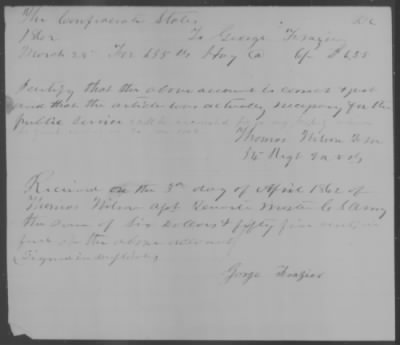 The Confederate States Dr
1862 To George Frazier
March 25 For 655 lbs Hay @ $6.55
I certify that the above account is correct & just
and that the articles were actually necessary for the
public service
Thomas Wilson
14 Regt
Received on the 3rd day of April 1862 of
Thomas Wilson Quarter Master C S Army
the sum of Six Dollars & fifty five cents in
full of the above account
(Signed in duplicate)
George Frazier